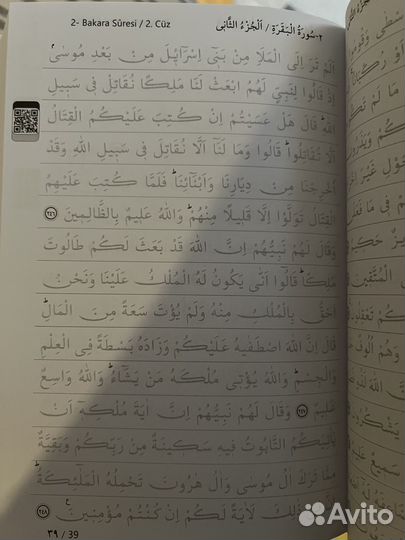 2- Bakara Sûresi / 2. Cüz
٢-سُورَةُ الْبَقَرَةِ / اَلْجُزْءُ الثَّانِى
اَلَمْ تَرَ اِلَى الْمَلَأِ مِنْ بَنِى اِسْرَائِلَ مِنْ بَعْدِ مُوسٰى
اِذْ قَالُوا لِنَبِىٍّ لَهُمُ ابْعَثْ لَنَا مَلِكًا نُقَاتِلْ فِى سَبِيلِ
اللّٰهِ قَالَ هَلْ عَسَيْتُمْ اِنْ كُتِبَ عَلَيْكُمُ الْقِتَالُ
اَلَّا تُقَاتِلُوا قَالُوا وَمَا لَنَا اَلَّا نُقَاتِلَ فِى سَبِيلِ اللّٰهِ وَقَدْ
اُخْرِجْنَا مِنْ دِيَارِنَا وَاَبْنَائِنَا فَلَمَّا كُتِبَ عَلَيْهِمُ
الْقِتَالُ تَوَلَّوْا اِلَّا قَلِيلًا مِنْهُمْ وَاللّٰهُ عَلِيمٌ بِالظَّالِمِينَ ﴿٢٤٦﴾
وَقَالَ لَهُمْ نَبِيُّهُمْ اِنَّ اللّٰهَ قَدْ بَعَثَ لَكُمْ طَالُوتَ
مَلِكًا قَالُوا اَنّٰى يَكُونُ لَهُ الْمُلْكُ عَلَيْنَا وَنَحْنُ
اَحَقُّ بِالْمُلْكِ مِنْهُ وَلَمْ يُؤْتَ سَعَةً مِنَ الْمَالِ
قَالَ اِنَّ اللّٰهَ اصْطَفٰيهُ عَلَيْكُمْ وَزَادَهُ بَسْطَةً فِى الْعِلْمِ
وَالْجِسْمِ وَاللّٰهُ يُؤْتِى مُلْكَهُ مَنْ يَشَاءُ وَاللّٰهُ وَاسِعٌ
عَلِيمٌ ﴿٢٤٧﴾ وَقَالَ لَهُمْ نَبِيُّهُمْ اِنَّ اٰيَةَ مُلْكِهِ اَنْ
يَأْتِيَكُمُ التَّابُوتُ فِيهِ سَكِينَةٌ مِنْ رَبِّكُمْ وَبَقِيَّةٌ
مِمَّا تَرَكَ اٰلُ مُوسٰى وَاٰلُ هٰرُونَ تَحْمِلُهُ الْمَلٰئِكَةُ
اِنَّ فِى ذٰلِكَ لَاٰيَةً لَكُمْ اِنْ كُنْتُمْ مُؤْمِنِينَ ﴿٢٤٨﴾
٣٩ / 39
Avito